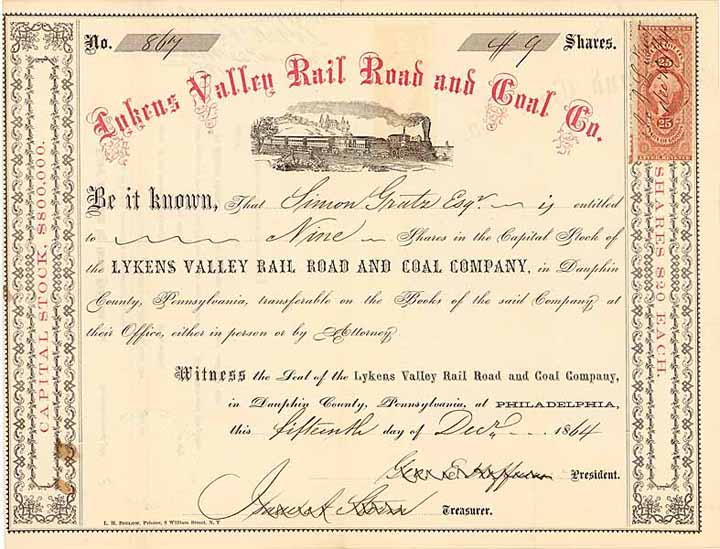 No. 867 # 9 Shares.
Lykens Valley Rail Road and Coal Co.
Be it known, That Simon Gratz Esqr. is entitled
to Nine Shares in the Capital Stock of
the LYKENS VALLEY RAIL ROAD AND COAL COMPANY, in Dauphin
County, Pennsylvania, transferable on the Books of the said Company at
their Office, either in person or by Attorney
Witness the Seal of the Lykens Valley Rail Road and Coal Company,
in Dauphin County, Pennsylvania, at PHILADELPHIA,
this fifteenth day of Decr. 1864
President.
Treasurer.
L. H. BIGLOW, Printer, 8 William Street, N. Y
CAPITAL STOCK, $800,000.
SHARES $20 EACH.
25